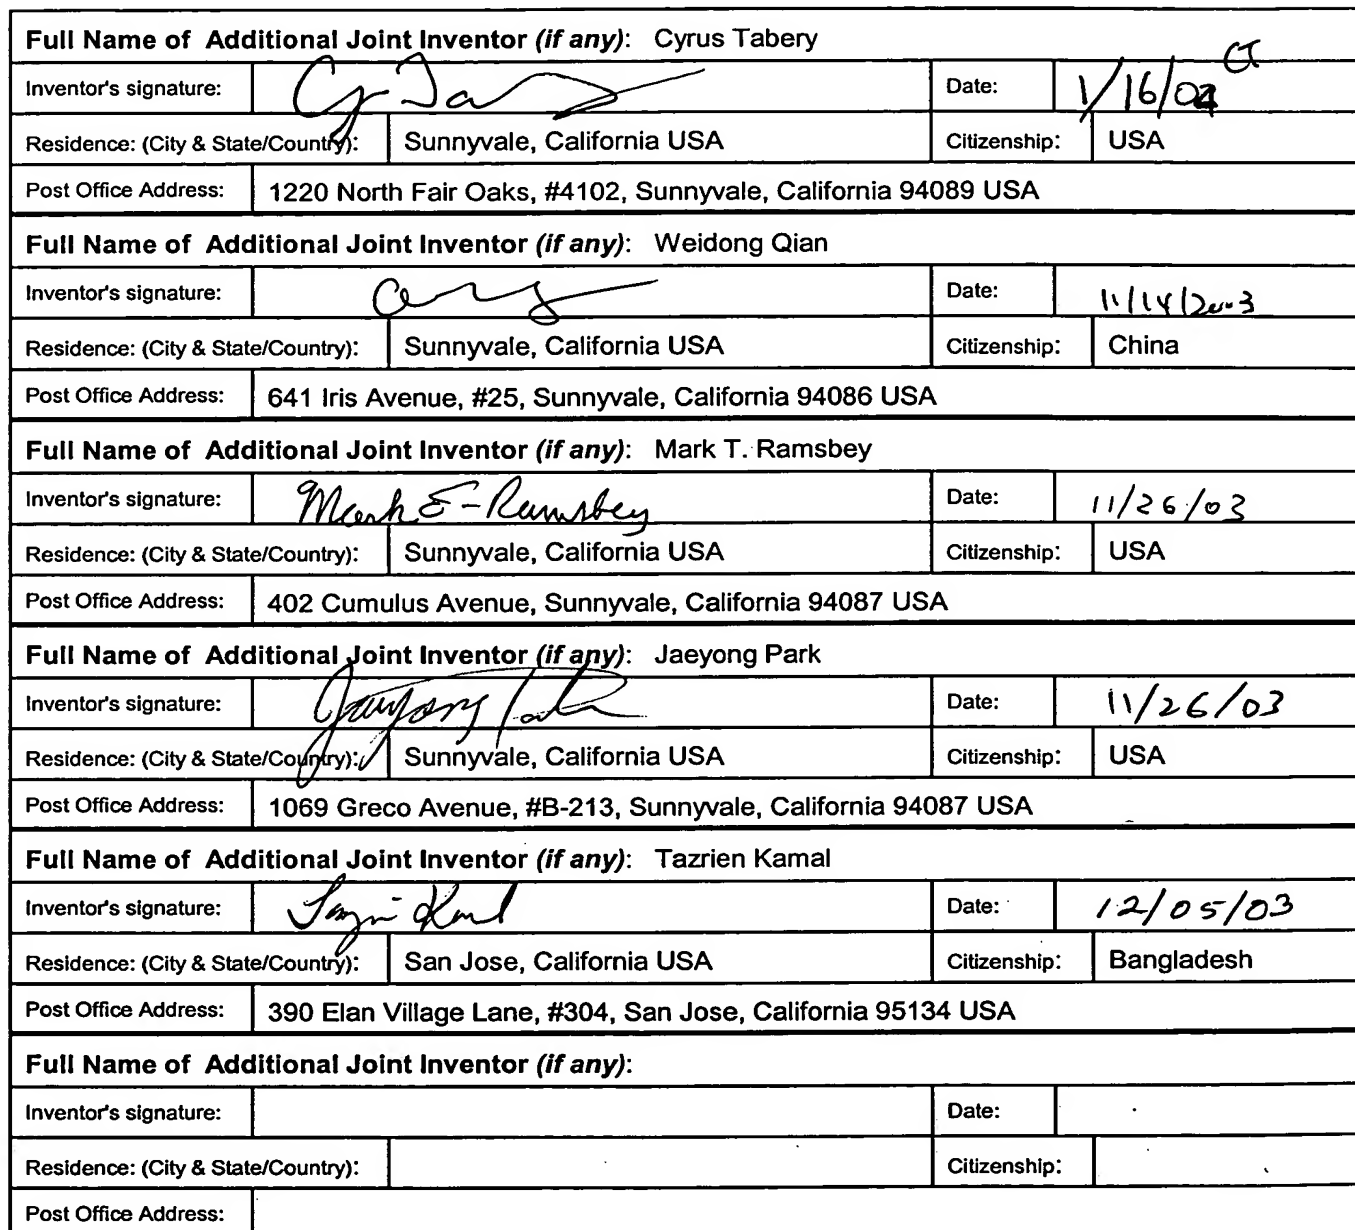 Full Name of Additional Joint Inventor (if any): Cyrus Tabery
Inventor's signature: Date: 1/16/04 CT
Residence: (City & State/Country): Sunnyvale, California USA Citizenship: USA
Post Office Address: 1220 North Fair Oaks, #4102, Sunnyvale, California 94089 USA
Full Name of Additional Joint Inventor (if any): Weidong Qian
Inventor's signature: Date: 11/14/2003
Residence: (City & State/Country): Sunnyvale, California USA Citizenship: China
Post Office Address: 641 Iris Avenue, #25, Sunnyvale, California 94086 USA
Full Name of Additional Joint Inventor (if any): Mark T. Ramsbey
Inventor's signature: Mark Ramsbey Date: 11/26/03
Residence: (City & State/Country): Sunnyvale, California USA Citizenship: USA
Post Office Address: 402 Cumulus Avenue, Sunnyvale, California 94087 USA
Full Name of Additional Joint Inventor (if any): Jaeyong Park
Inventor's signature: Jaeyong Park Date: 11/26/03
Residence: (City & State/Country): Sunnyvale, California USA Citizenship: USA
Post Office Address: 1069 Greco Avenue, #B-213, Sunnyvale, California 94087 USA
Full Name of Additional Joint Inventor (if any): Tazrien Kamal
Inventor's signature: Date: 12/05/03
Residence: (City & State/Country): San Jose, California USA Citizenship: Bangladesh
Post Office Address: 390 Elan Village Lane, #304, San Jose, California 95134 USA
Full Name of Additional Joint Inventor (if any):
Inventor's signature: Date:
Residence: (City & State/Country): Citizenship:
Post Office Address: